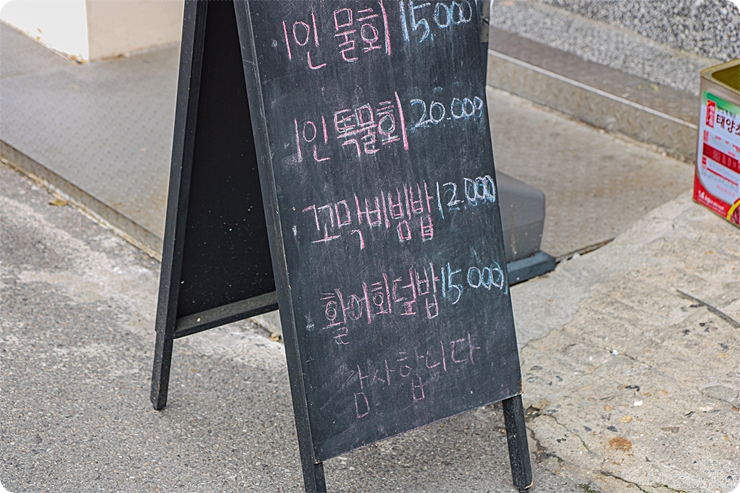 1인 물회 15,000
1인 똑물회 20.000
꼬막비빔밥 12.000
활어회덮밥 15,000
감사합니다
태양초